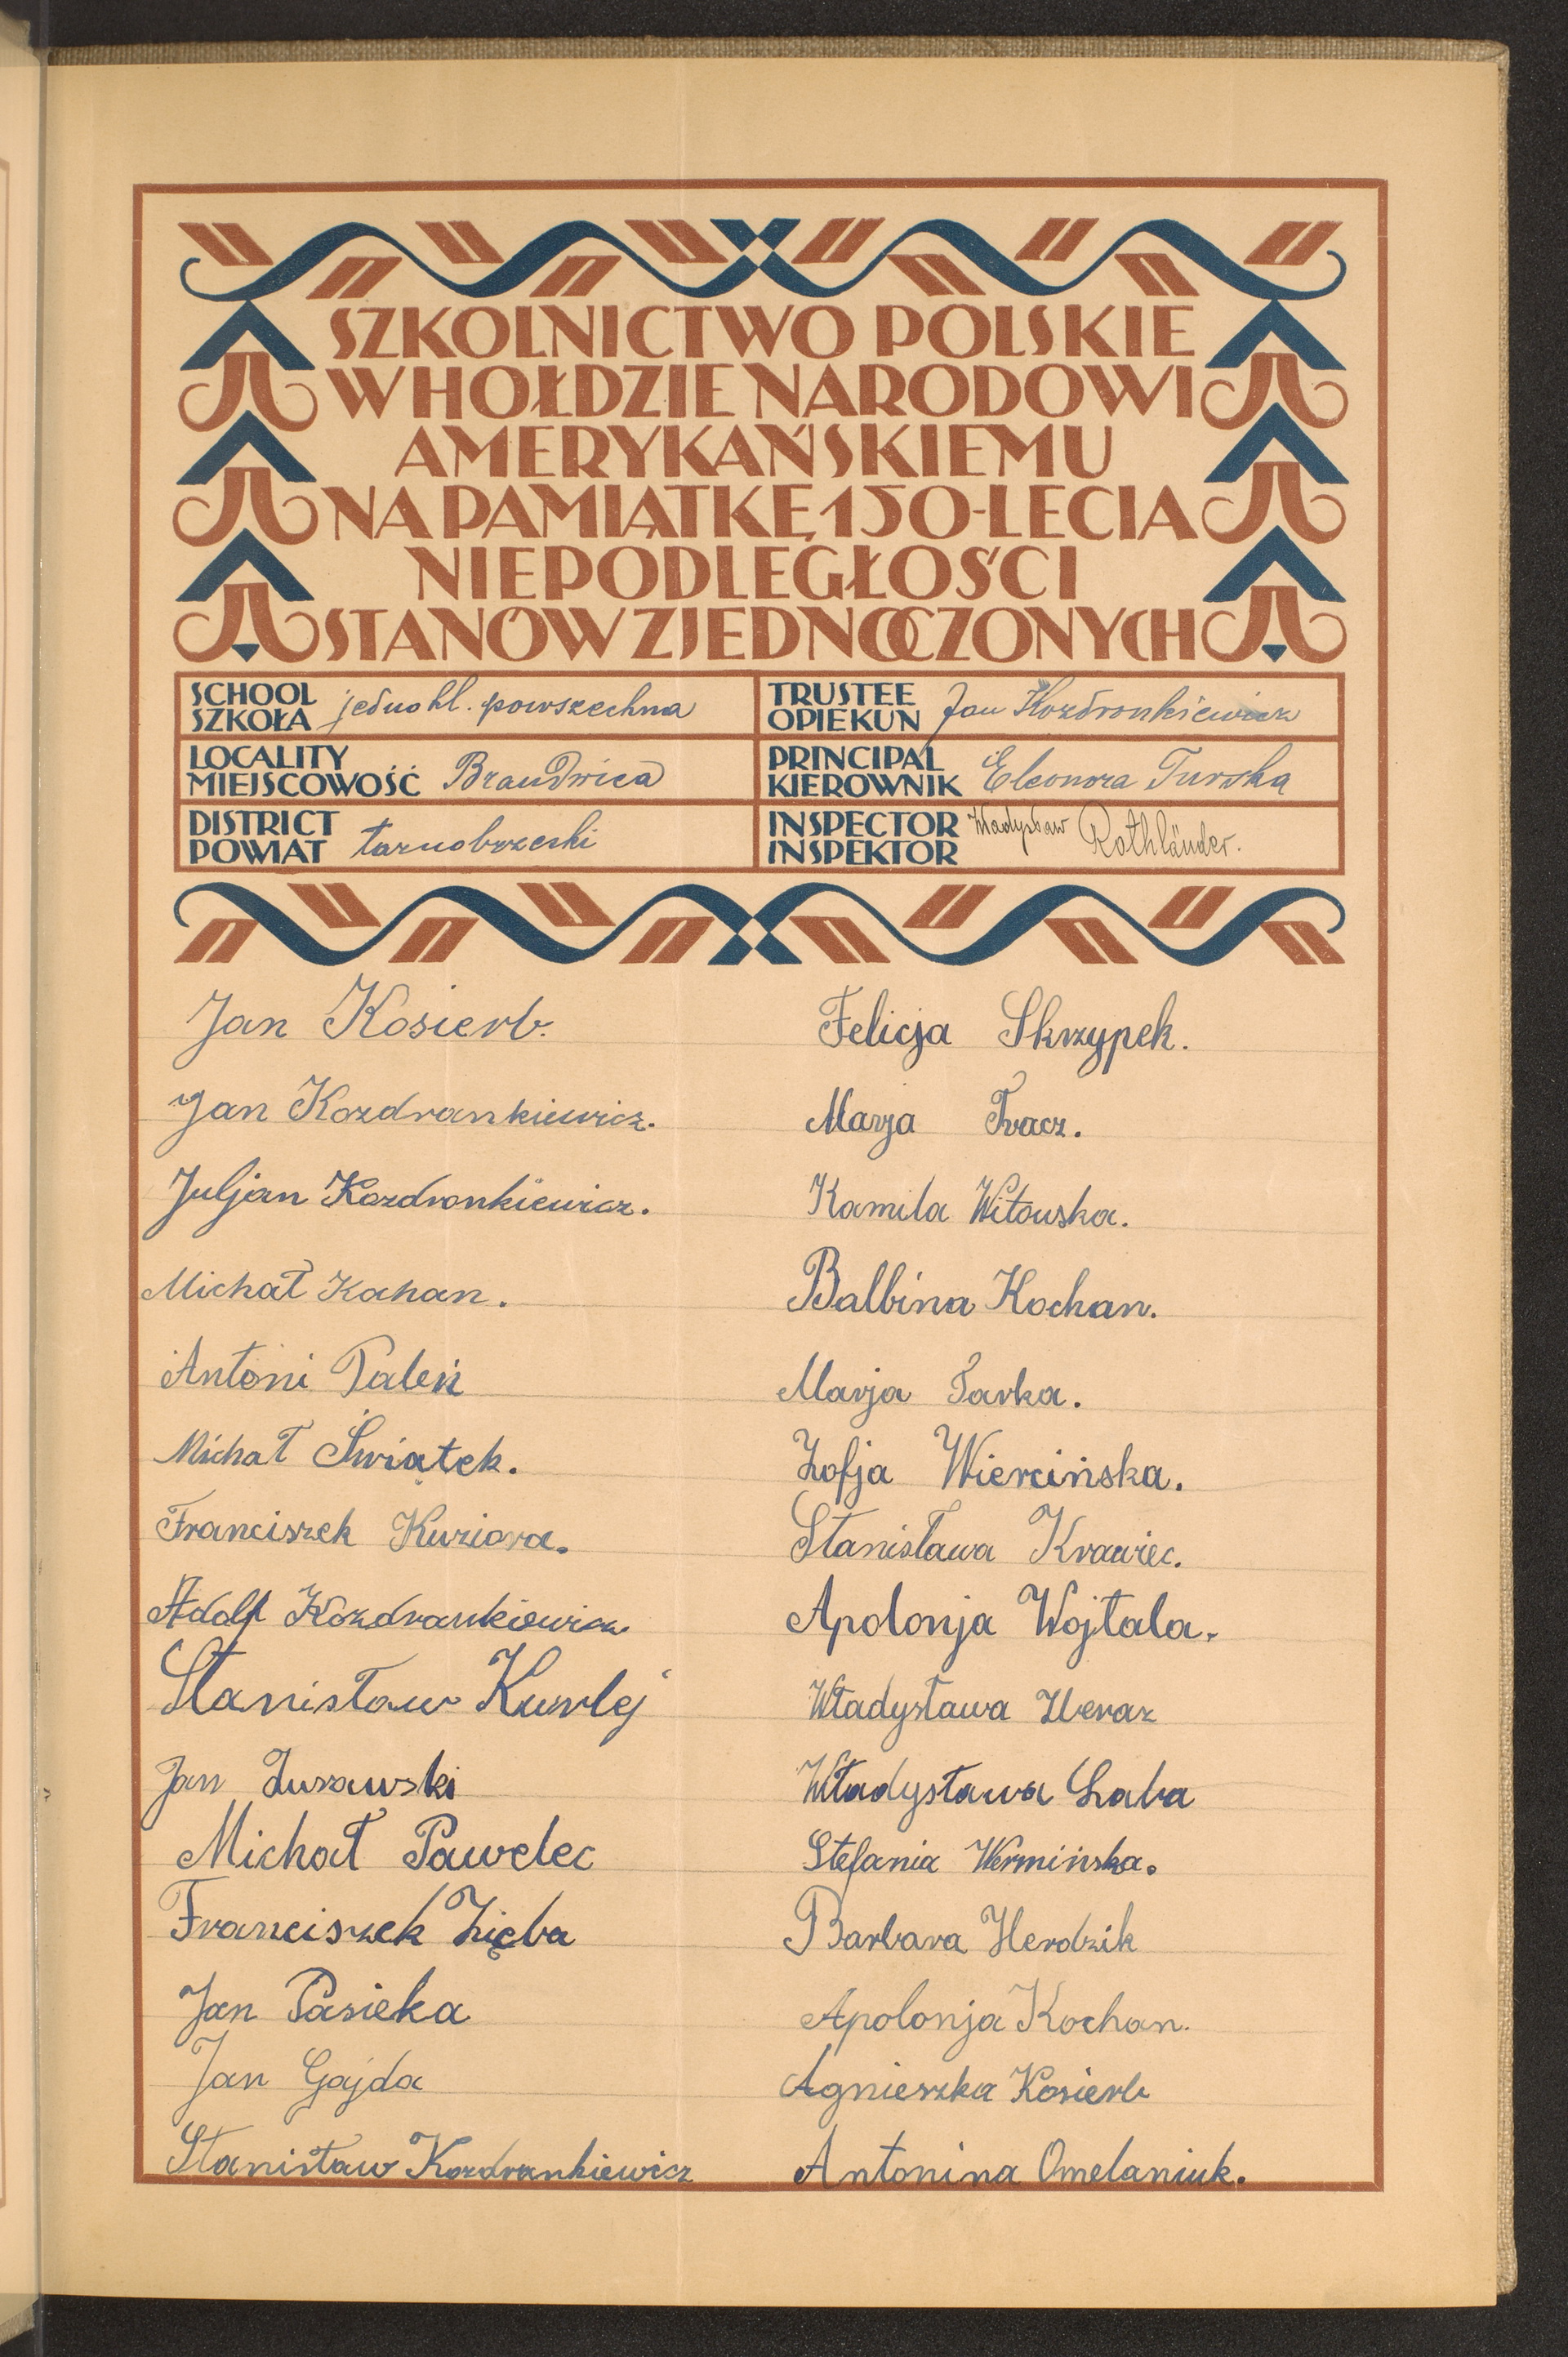 SZKOLNICTWO POLSKIE
W HOŁDZIE NARODOWI
AMERYKAŃSKIEMU
NA PAMIĄTKĘ 150-LECIA
NIEPODLEGŁOŚCI
STANÓW ZJEDNOCZONYCH
SCHOOL
SZKOŁA jednokl. powszechna
TRUSTEE
OPIEKUN Jan Kozdronkiewicz
LOCALITY
MIEJSCOWOŚĆ Brandwica
PRINCIPAL
KIEROWNIK Eleonora Turska
DISTRICT
POWIAT tarnobrzeski
INSPECTOR
INSPEKTOR Władysław Rothländer.
Jan Kosierb.
Jan Kozdrankiewicz.
Juljan Kozdronkiewicz.
Michał Kohan.
Antoni Paleń
Michał Świątek.
Franciszek Kuziora.
Adolf Kozdrankiewicz
Stanisław Kurlej
Jan Żurawski
Michał Pawelec
Franciszek Zięba
Jan Pasieka
Jan Gajda
Stanisław Kozdrankiewicz
Felicja Skrzypek.
Marja Tracz.
Kamila Witowska.
Balbina Kochan.
Marja Tarka.
Zofja Wiercińska.
Stanisława Krawiec.
Apolonja Wojtala.
Władysława
Władysława Łaba
Stefania Wermińska.
Barbara Herdzik
Apolonja Kochan.
Agnieszka Kosierb
Antonina Omelaniuk.